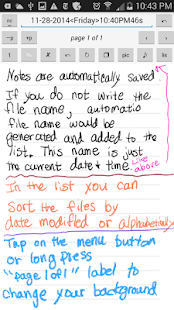 10:43 PM
11-28-2014<Friday>10:40PM46s
page 1 of 1
pic
Notes are automatically saved
If you do not write the
file name, automatic
file name would be
generated and added to the
list. This name is just
the current date & time Like above
In the list you can
Sort the files by
date modified or alphabetically
Tap on the menu button
or long press
"page 1 of 1" label to
change your background